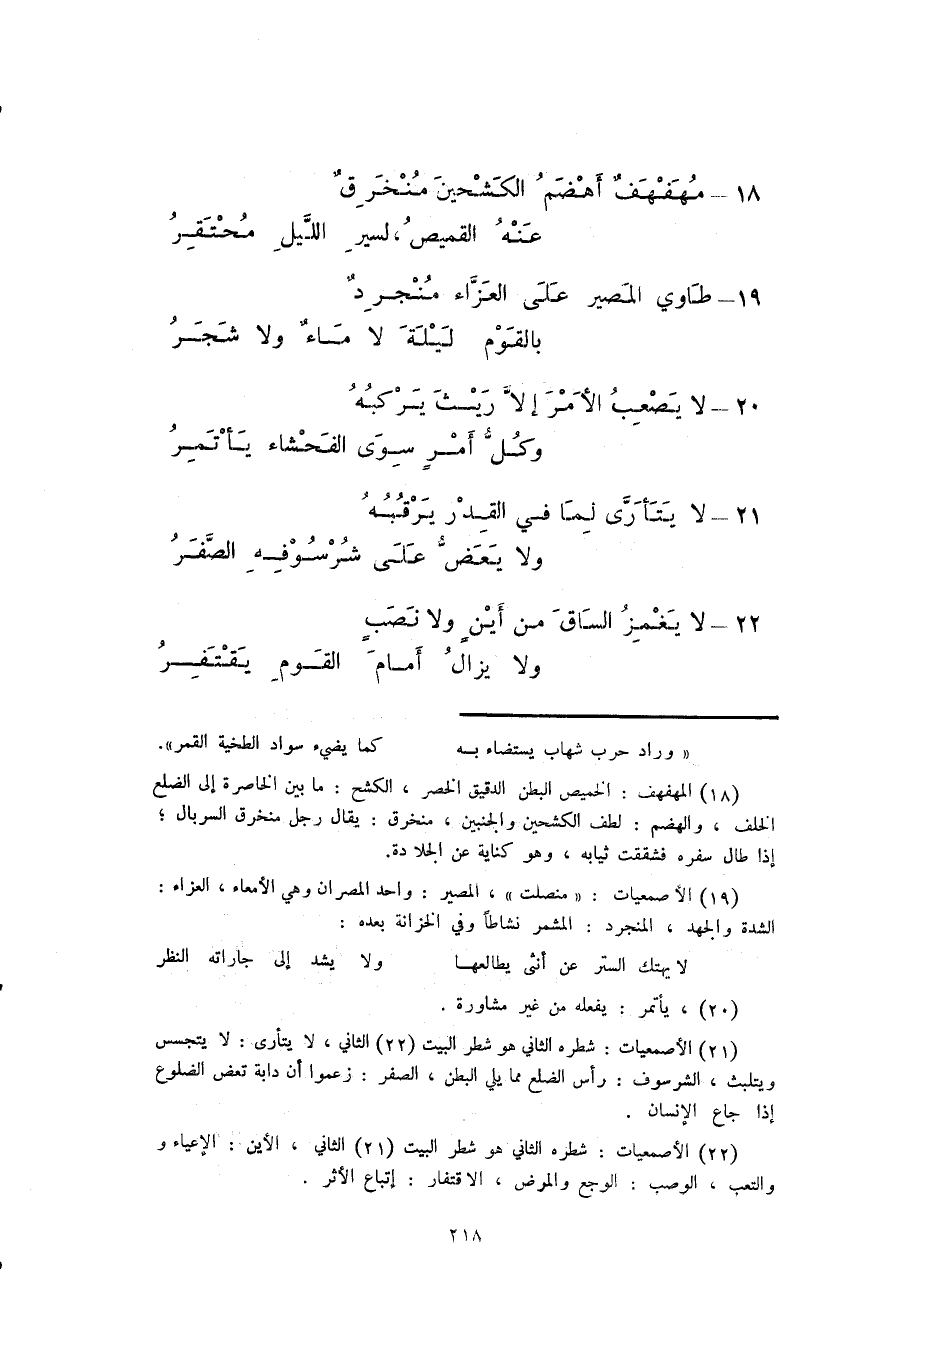 ١٨ – مُهَفْهَفٌ أَهْضَمُ الكَشْحينَ مُنْخَرِقٌ
عَنْهُ القميصُ، لسيرِ اللَّيلِ مُحْتَقِرُ
١٩ – طَاوي المَصير عَلَى العَزَّاء مُنْجرِدٌ
بالقَوْم لَيْلَةَ لا مَاءٌ ولا شَجَرُ
٢٠ – لا يَصْعِبُ الأَمْرَ إلاَّ رَيْثَ يَرْكبُهُ
وكُلُّ أَمْرٍ سِوَى الفَحْشاء يَأْتَمِرُ
٢١ – لا يَتَأَرَّى لِمَا في القِدْر يَرْقُبُهُ
ولا يَعَضُّ عَلَى شُرْسُوْفِهِ الصَّفَرُ
٢٢ – لا يَغْمِزُ السَاقَ من أَيْنٍ ولا نَصَبٍ
ولا يزالُ أَمامَ القَومِ يَقْتَفِرُ
« وراد حرب شهاب يستضاء به كما يضيء سواد الطخية القمر».
(١٨) المهفهف : الخميص البطن الدقيق الخصر ، الكشح : ما بين الخاصرة إلى الضلع
الخلف ، والهضم : لطف الكشحين والجنبين ، منخرق : يقال رجل منخرق السربال ؛
إذا طال سفره فشققت ثيابه ، وهو كناية عن الجلادة.
(١٩) الأصمعيات : « منصلت » ، المصير : واحد المصران وهي الأمعاء ، العزاء :
الشدة والجهد ، المنجرد : المشمر نشاطاً وفي الخزانة بعده :
لا يهتك الستر عن أنثى يطالعها ولا يشد إلى جاراته النظر
(٢٠) ، يأتمر : يفعله من غير مشاورة .
(٢١) الأصمعيات : شطره الثاني هو شطر البيت (٢٢) الثاني ، لا يتأرى : لا يتجسس
ويتلبث ، الشرسوف : رأس الضلع مما يلي البطن ، الصفر : زعموا أن دابة تعض الضلوع
إذا جاع الإنسان .
(٢٢) الأصمعيات : شطره الثاني هو شطر البيت (٢١) الثاني ، الأين : الإعياء و
والتعب ، الوصب : الوجع والمرض ، الاقتفار : إتباع الأثر .
٢١٨